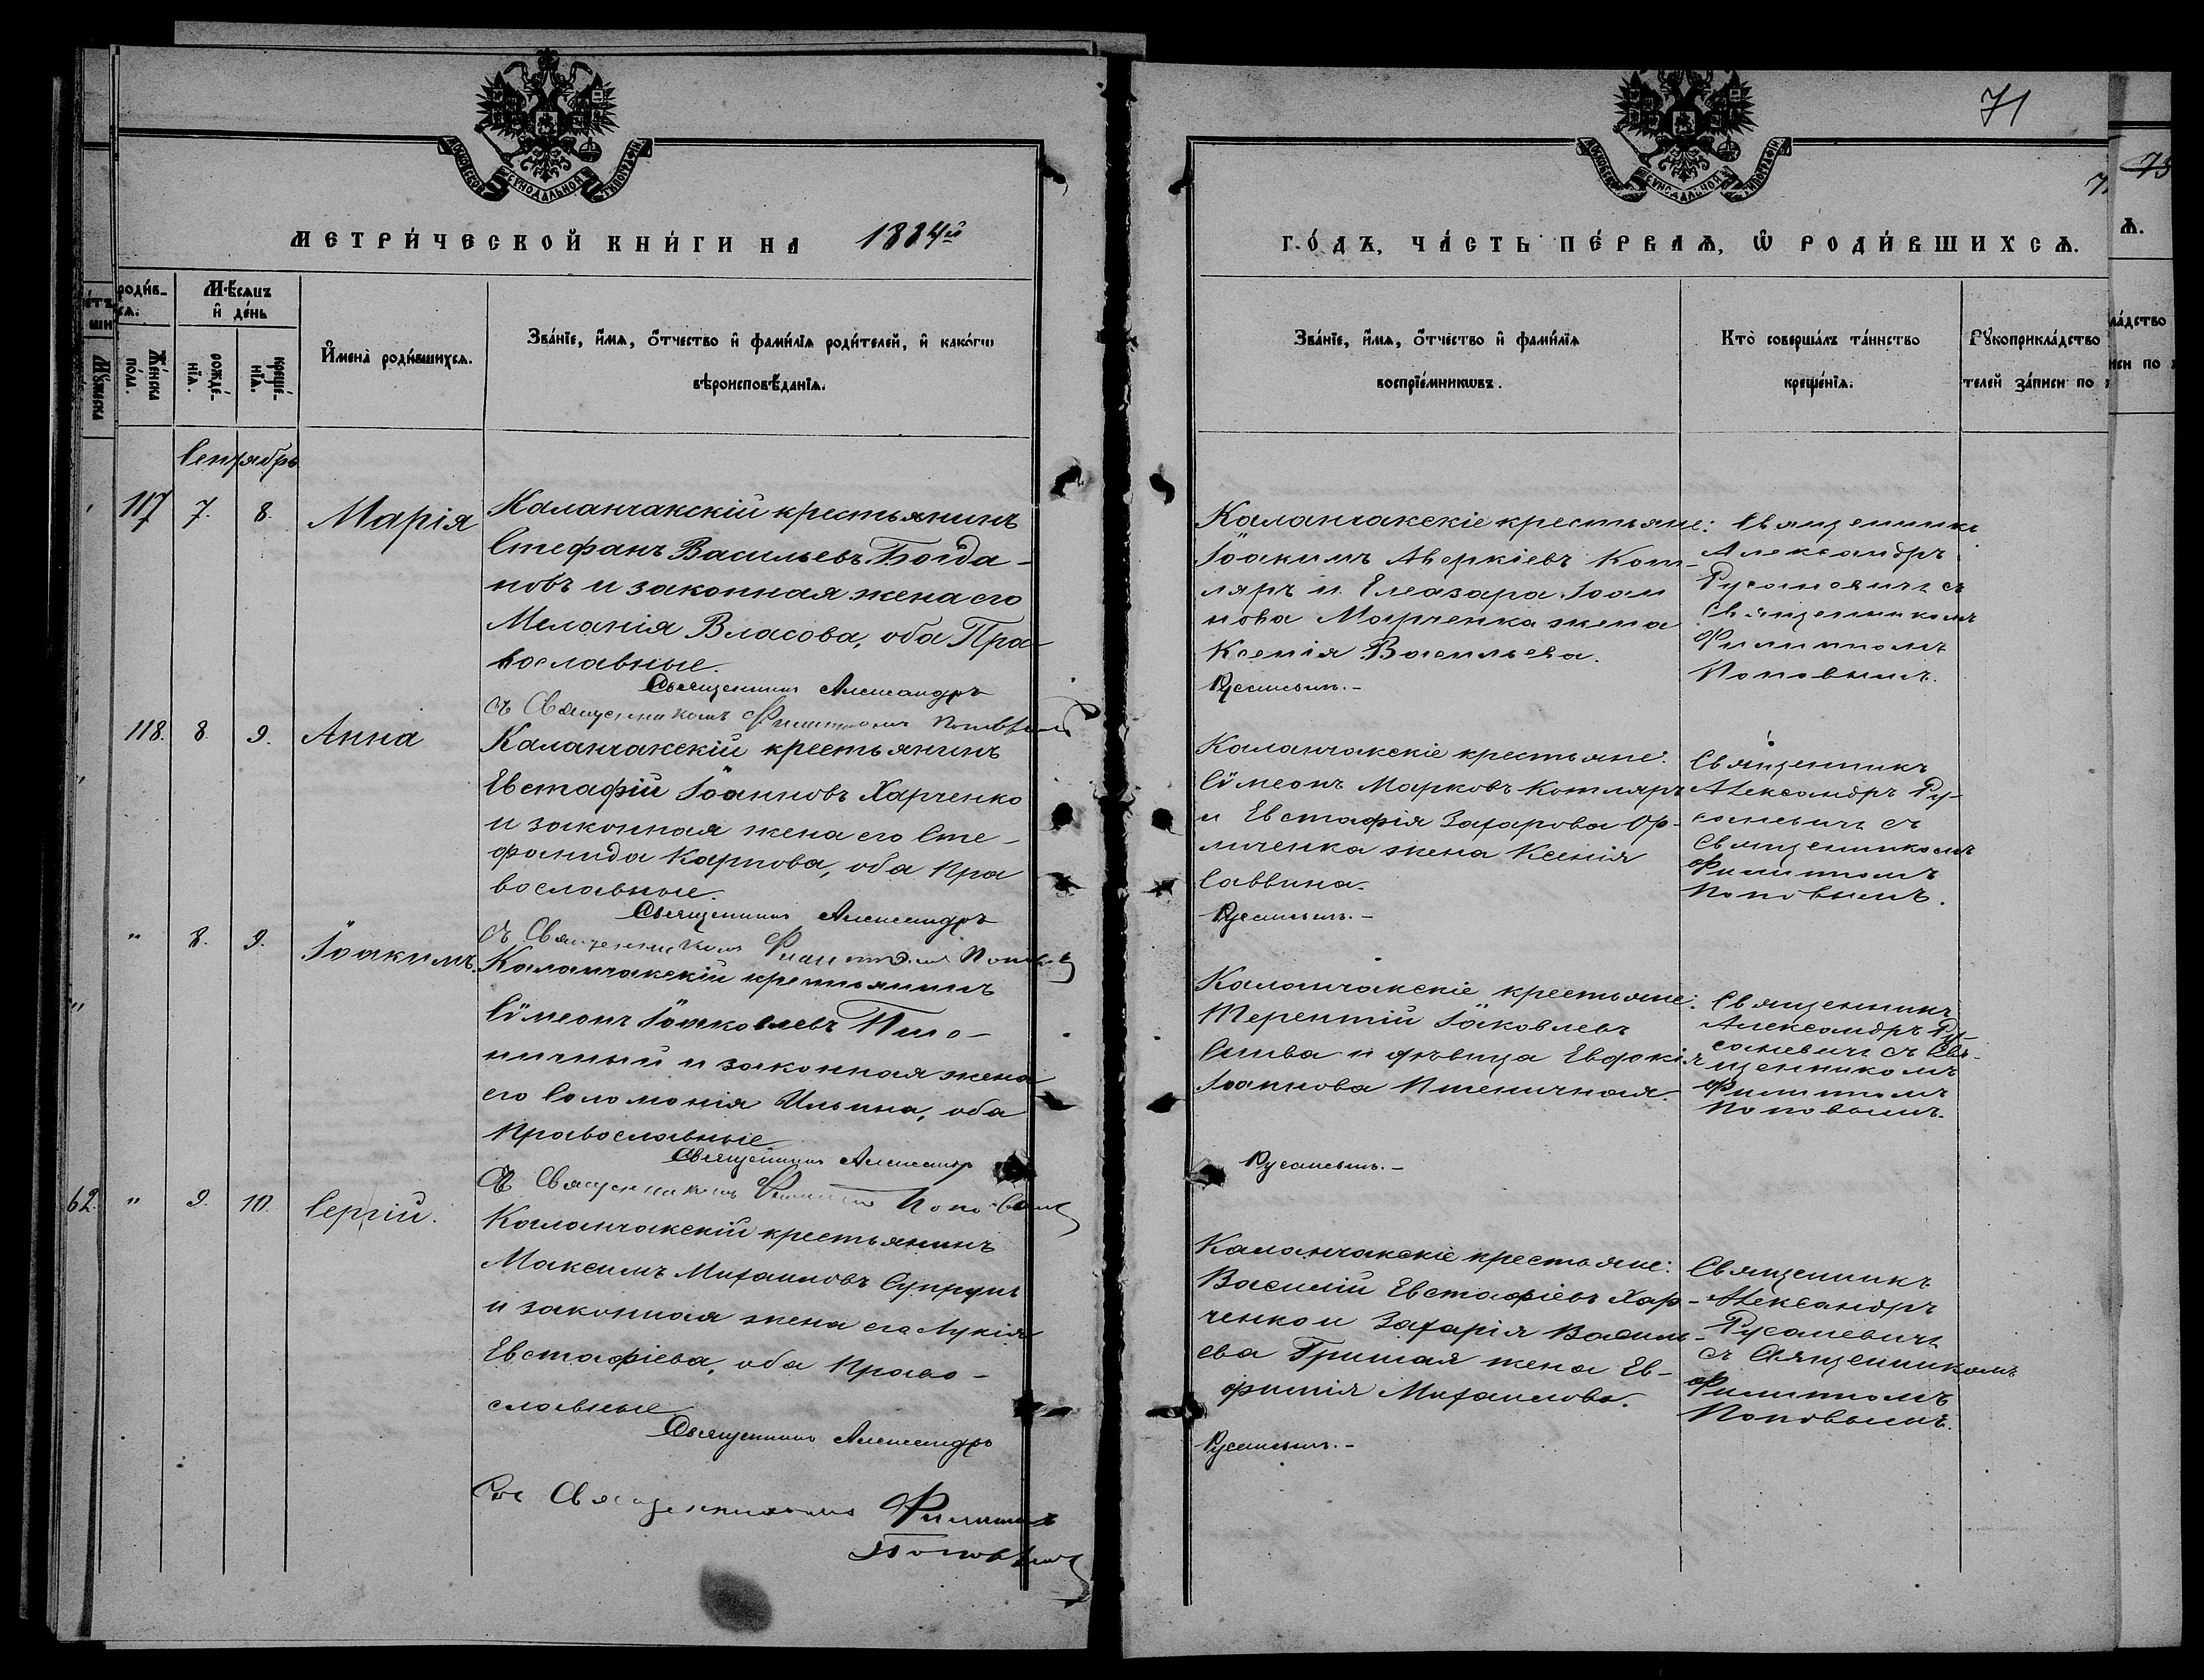 71
МОСКОВСКОЙ СѴНОДАЛЬНОЙ ТИПОГРАФІИ
МОСКОВСКОЙ СѴНОДАЛЬНОЙ ТИПОГРАФІИ
МЕТРИ́ЧЕСКОЙ КНИ́ГИ НА 1884й
ГО́ДЪ, ЧА́СТЬ ПЕ́РВАѦ, Ѡ РОДИ́ВШИХСѦ.
роди́в-
сѧ.
Же́нска
по́ла.
Му́жеска
Мѣ́сѧцъ
и҆ де́нь
рожде́-
нїѧ.
креще́-
нїѧ.
И҆мена̀ роди́вшихсѧ.
Зва́нїе, и҆́мѧ, ѻ҆́тчество и҆ фами́лїѧ роди́телей, и҆ како́гѡ
вѣроисповѣ́данїѧ.
Зва́нїе, и҆́мѧ, ѻ҆́тчество и҆ фами́лїѧ
воспрїе́мникѡвъ.
Кто̀ соверша́лъ та́инство
креще́нїѧ.
Рꙋкоприкла́дство
телей за́писи по
Сентябрь
117 7. 8. Марія
Каланчакскій крестьянинъ
Стефанъ Васильевъ Богда-
новъ и законная жена его
Меланія Власова, оба Пра-
вославные.
Священникъ Александръ
съ Священникомъ Филиппомъ Поповымъ
Каланчакскіе крестьяне:
Іоакимъ Аверкіевъ Кот-
ляръ и Елеазара Іоан
нова Марченка жена
Ксенія Васильева.
Русаневичъ.-
Священникъ
Александръ
Русаневичъ съ
Священникомъ
Филиппомъ
Поповымъ.
118. 8. 9. Анна
Каланчакскій крестьянинъ
Евстафій Іоанновъ Харченко
и законная жена его Сте-
фанида Карпова, оба Пра
вославные.
Священникъ Александръ
съ Священникомъ Филиппомъ Поповымъ
Каланчакскіе крестьяне:
Сѵмеонъ Марковъ Котляръ
и Евстафія Захарова Ор-
личенка жена Ксенія
Саввина.
Русаневичъ.-
Священникъ
Александръ Ру-
саневичъ съ
Священникомъ
Филиппомъ
Поповымъ.
" 8. 9. Іоакимъ.
Каланчакскій крестьянинъ
Сѵмеонъ Іаковлевъ Пше-
ничный и законная жена
его Соломонія Ильина, оба
Православные
Священникъ Александръ
Съ Священникомъ Филиппомъ Поповымъ
Каланчакскіе крестьяне:
Терентій Іаковлевъ
Слива и дѣвица Евдокія
Іоаннова Пшеничная.
Русаневичъ.-
Священникъ
Александръ Ру-
саневичъ съ Свя-
щенникомъ
Филиппомъ
Поповымъ.
62. " 9. 10. Сергій.
Каланчакскій крестьянинъ
Максимъ Михаиловъ Супрунъ
и законная жена его Лукія
Евстафіева, оба Право-
славные
Священникъ Александръ
Съ Священникомъ Филиппомъ
Поповымъ
Каланчакскіе крестьяне:
Василій Евстафіевъ Хар-
ченко и Захарія Василь-
ева Грицая жена Ев-
фимія Михаилова.
Русаневичъ.-
Священникъ
Александръ
Русаневичъ
съ Священникомъ
Филиппомъ
Поповымъ.